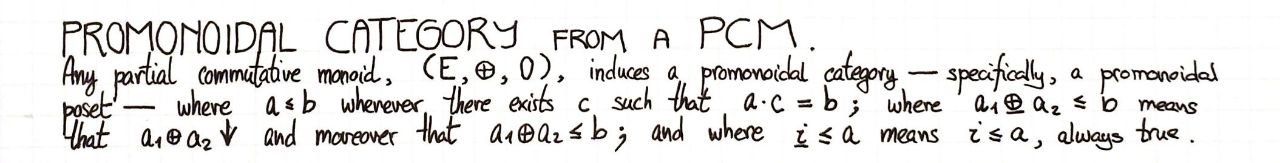 PROMONOIDAL CATEGORY FROM A PCM.
Any partial commutative monoid, (E, ⊕, 0), induces a promonoidal category — specifically, a promonoidal
poset — where a ≤ b whenever there exists c such that a·c = b; where a₁ ⊕̲ a₂ ≤ b means
that a₁⊕a₂ ↓ and moreover that a₁⊕a₂ ≤ b; and where i̲ ≤ a means i ≤ a, always true.